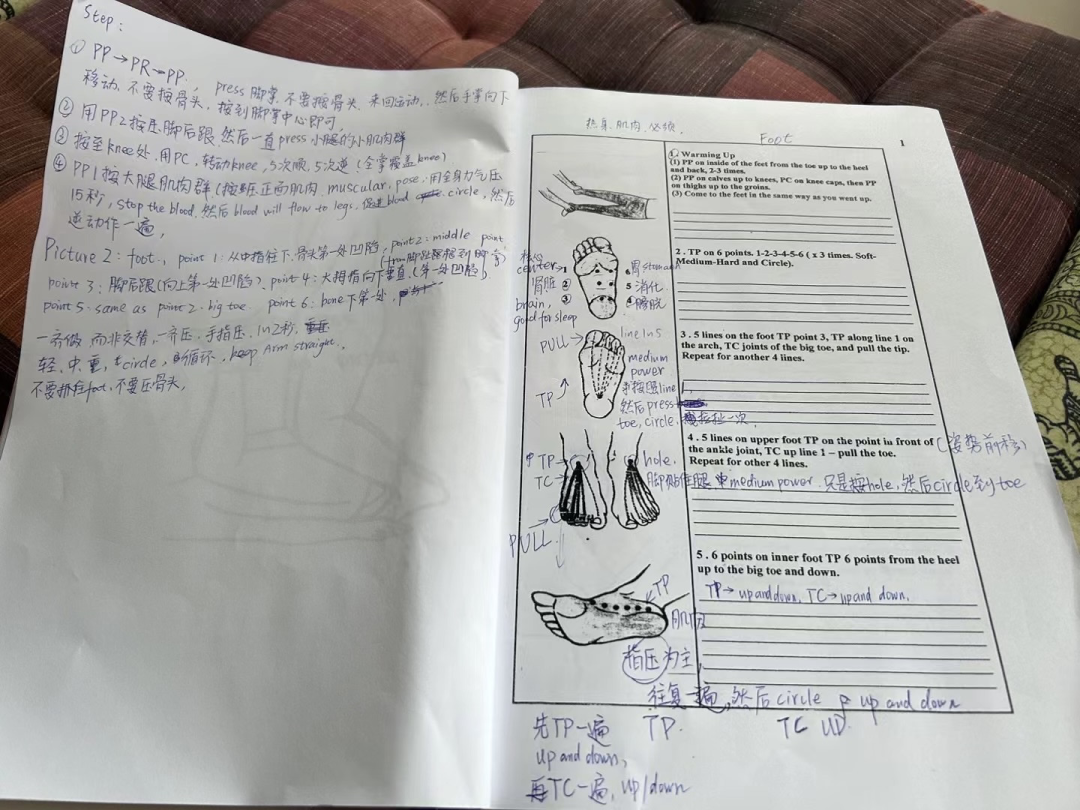 Step:
① PP→PR→PP.
移动、不要按骨头, press脚掌、不要按骨头、来回运动, 然后手掌向下
按到脚掌中心即可,
② 用PP2按压脚后跟, 然后一直press小腿的小肌肉群
③ 按至knee处, 用PC, 转动knee, 5次顺, 5次逆 (全掌覆盖knee)
④ PP1按大腿肌肉群 (按压正面肌肉 muscular, pose, 用全身力气压
15秒, stop the blood, 然后blood will flow to legs. 促进blood circle, 然后
逆动作一遍,
Picture 2: foot., point 1: 从中指往下. 骨头第一处凹陷, point 2: middle point
point 3: 脚后跟(向上第一处凹陷)、point 4: 大拇指向下垂直. (第一处凹陷)
point 5. same as point 2. big toe point 6: bone下第一处.
一齐做, 而非交替, 一齐压, 手指压, 1n2秒,
轻, 中, 重, circle, 循环, keep Arm straight.
不要抓住foot, 不要压骨头,
热身. 肌肉
Foot
1
1. Warming Up
(1) PP on inside of the feet from the toe up to the heel
and back, 2-3 times.
(2) PP on calves up to knees, PC on knee caps, then PP
on thighs up to the groins.
(3) Come to the feet in the same way as you went up.
center
肾脏
brain,
good for sleep
① ② ③
4 5 6
胃stomach
消化
膀胱
2 . TP on 6 points. 1-2-3-4-5-6 ( x 3 times. Soft-
Medium-Hard and Circle).
PULL
TP
line 1n5
medium
power
按照line 1,
然后press
toe, circle, 拉一次.
3 . 5 lines on the foot TP point 3, TP along line 1 on
the arch, TC joints of the big toe, and pull the tip.
Repeat for another 4 lines.
TP
TC
PULL
hole.
4 . 5 lines on upper foot TP on the point in front of
the ankle joint, TC up line 1 – pull the toe.
Repeat for other 4 lines.
(姿势前移)
脚贴住腿, 中medium power. 只是按hole, 然后circle到toe
5 . 6 points on inner foot TP 6 points from the heel
up to the big toe and down.
TP→ up and down, TC→ up and down.
TP
肌肉
指压为主,
往复一遍, 然后circle up and down
TP. TC UD
先TP一遍
up and down,
再TC一遍, up/down